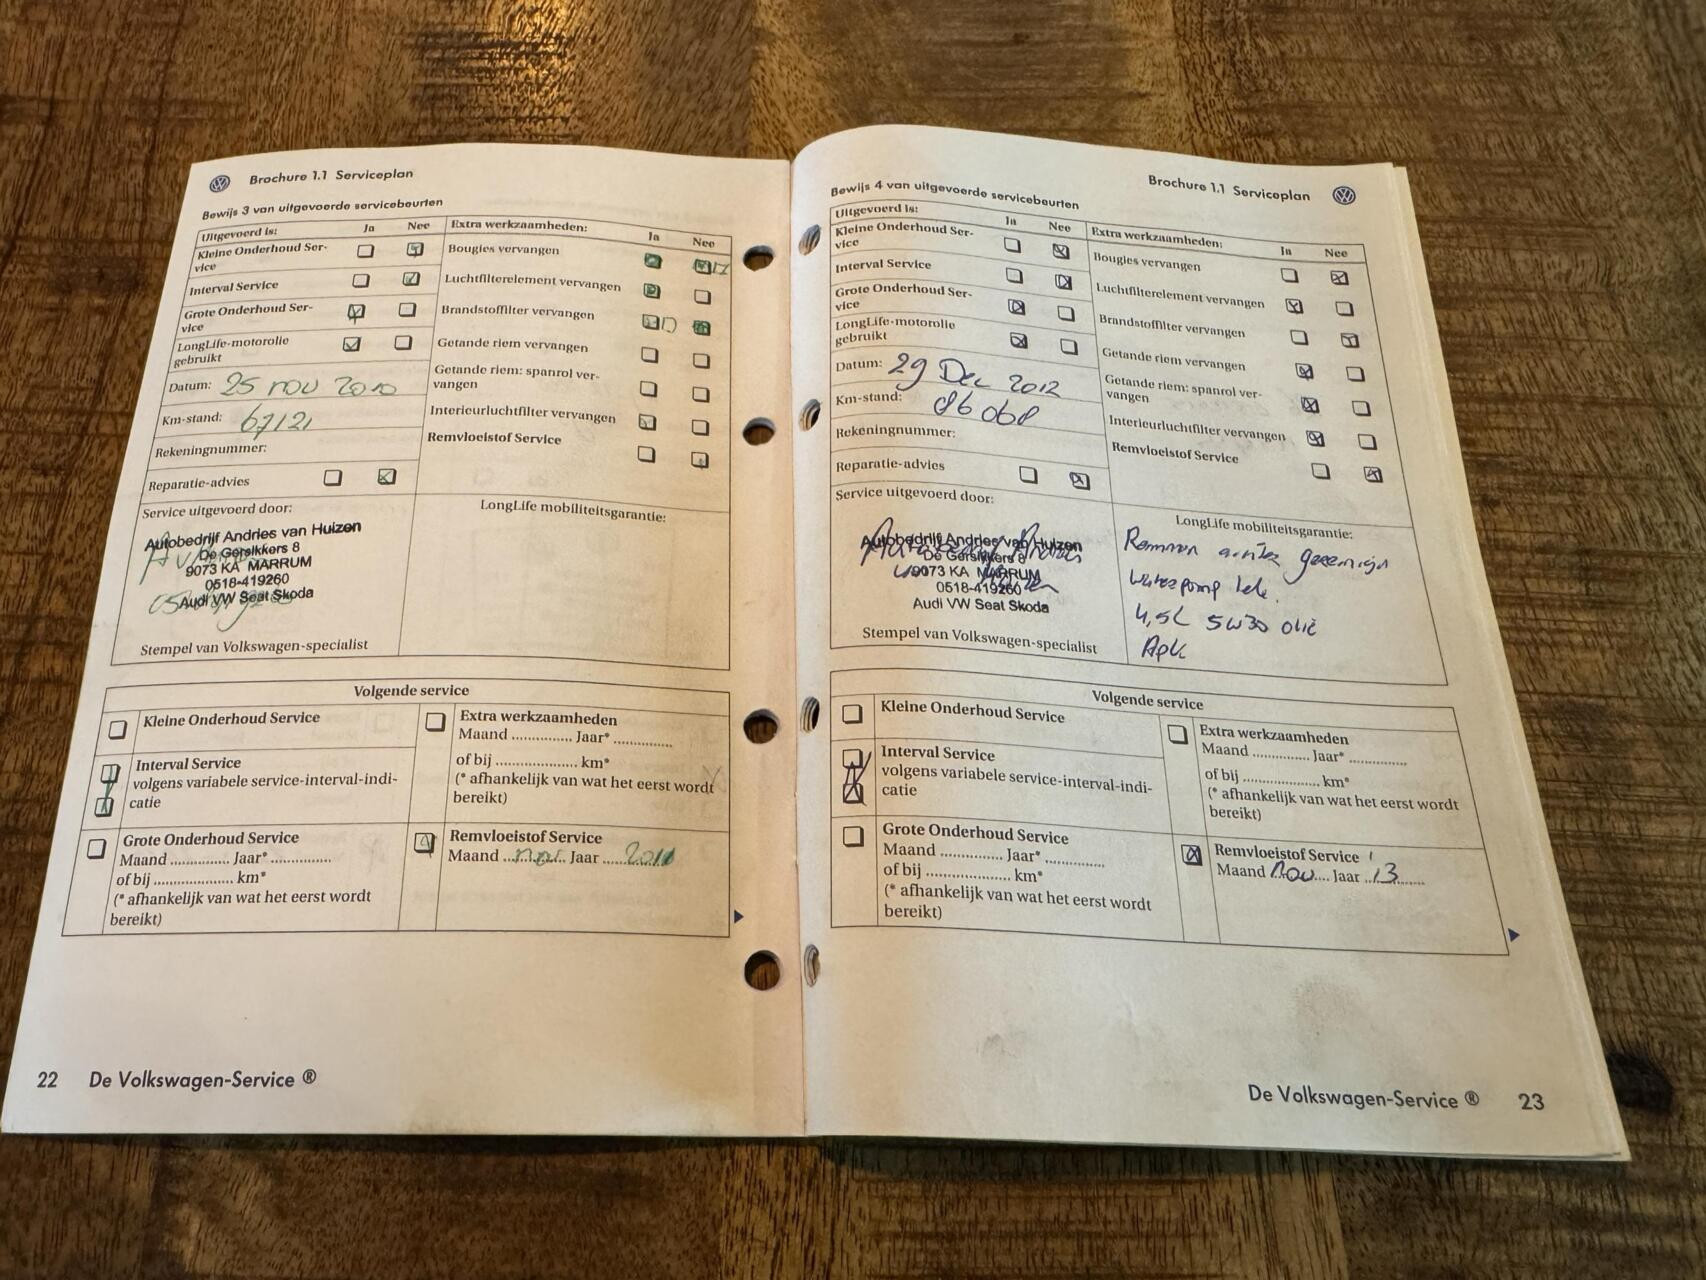 Brochure 1.1 Serviceplan
Bewijs 3 van uitgevoerde servicebeurten
Uitgevoerd is: Ja Nee
Kleine Onderhoud Ser-
vice
Interval Service
Grote Onderhoud Ser-
vice
LongLife-motorolie
gebruikt
Datum: 25 nov 2010
Km-stand: 67121
Rekeningnummer:
Reparatie-advies
Extra werkzaamheden: Ja Nee
Bougies vervangen
Luchtfilterelement vervangen
Brandstoffilter vervangen
Getande riem vervangen
Getande riem: spanrol ver-
vangen
Interieurluchtfilter vervangen
Remvloeistof Service
Service uitgevoerd door:
Autobedrijf Andries van Huizen
De Gersikkers 8
9073 KA MARRUM
0518-419260
Audi VW Seat Skoda
Stempel van Volkswagen-specialist
LongLife mobiliteitsgarantie:
Volgende service
Kleine Onderhoud Service
Interval Service
volgens variabele service-interval-indi-
catie
Grote Onderhoud Service
Maand .............. Jaar* ..............
of bij .................... km*
(* afhankelijk van wat het eerst wordt
bereikt)
Extra werkzaamheden
Maand .............. Jaar* ..............
of bij .................... km*
(* afhankelijk van wat het eerst wordt
bereikt)
Remvloeistof Service
Maand nov Jaar 2011
22 De Volkswagen-Service ®
Brochure 1.1 Serviceplan
Bewijs 4 van uitgevoerde servicebeurten
Uitgevoerd is: Ja Nee
Kleine Onderhoud Ser-
vice
Interval Service
Grote Onderhoud Ser-
vice
LongLife-motorolie
gebruikt
Datum: 29 Dec 2012
Km-stand: 86068
Rekeningnummer:
Reparatie-advies
Extra werkzaamheden: Ja Nee
Bougies vervangen
Luchtfilterelement vervangen
Brandstoffilter vervangen
Getande riem vervangen
Getande riem: spanrol ver-
vangen
Interieurluchtfilter vervangen
Remvloeistof Service
Service uitgevoerd door:
Autobedrijf Andries van Huizen
De Gersikkers 8
9073 KA MARRUM
0518-419260
Audi VW Seat Skoda
Stempel van Volkswagen-specialist
LongLife mobiliteitsgarantie:
Remmen
Waterpomp
4,5L 5W30 olie
Apk
Volgende service
Kleine Onderhoud Service
Interval Service
volgens variabele service-interval-indi-
catie
Grote Onderhoud Service
Maand .............. Jaar* ..............
of bij .................... km*
(* afhankelijk van wat het eerst wordt
bereikt)
Extra werkzaamheden
Maand .............. Jaar* ..............
of bij .................... km*
(* afhankelijk van wat het eerst wordt
bereikt)
Remvloeistof Service
Maand Nov Jaar '13
De Volkswagen-Service ® 23